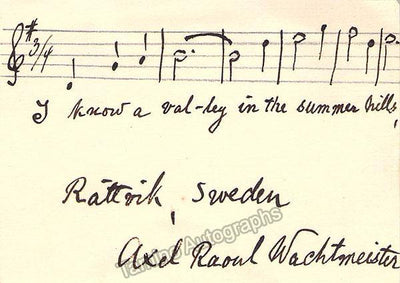 3/4
I know a val-ley in the summer hills,
Rättvik, Sweden
Axel Raoul Wachtmeister
Tamino Autographs